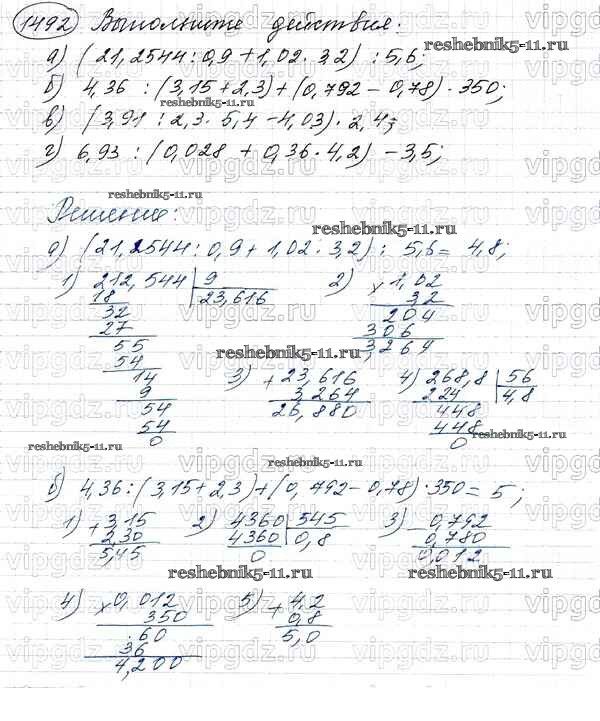 1492 Выполните действия:
а) (21,2544 : 0,9 + 1,02 · 3,2) : 5,6;
б) 4,36 : (3,15 + 2,3) + (0,792 − 0,78) · 350;
в) (3,91 : 2,3 · 5,4 − 4,03) · 2,4;
г) 6,93 : (0,028 + 0,36 · 4,2) − 3,5;
Решение:
а) (21,2544 : 0,9 + 1,02 · 3,2) : 5,6 = 4,8;
1) 212,544 | 9
18 23,616
32
27
55
54
14
9
54
54
0
2) × 1,02
3,2
204
306
3,264
3) + 23,616
3,264
26,880
4) 268,8 | 56
224 4,8
448
448
0
б) 4,36 : (3,15 + 2,3) + (0,792 − 0,78) · 350 = 5;
1) + 3,15
2,30
5,45
2) 4360 | 545
4360 0,8
0
3) − 0,792
0,780
0,012
4) × 0,012
350
60
36
4,200
5) + 4,2
0,8
5,0
reshebnik5-11.ru
reshebnik5-11.ru
reshebnik5-11.ru
reshebnik5-11.ru
reshebnik5-11.ru
reshebnik5-11.ru
reshebnik5-11.ru
reshebnik5-11.ru
vipgdz.ru